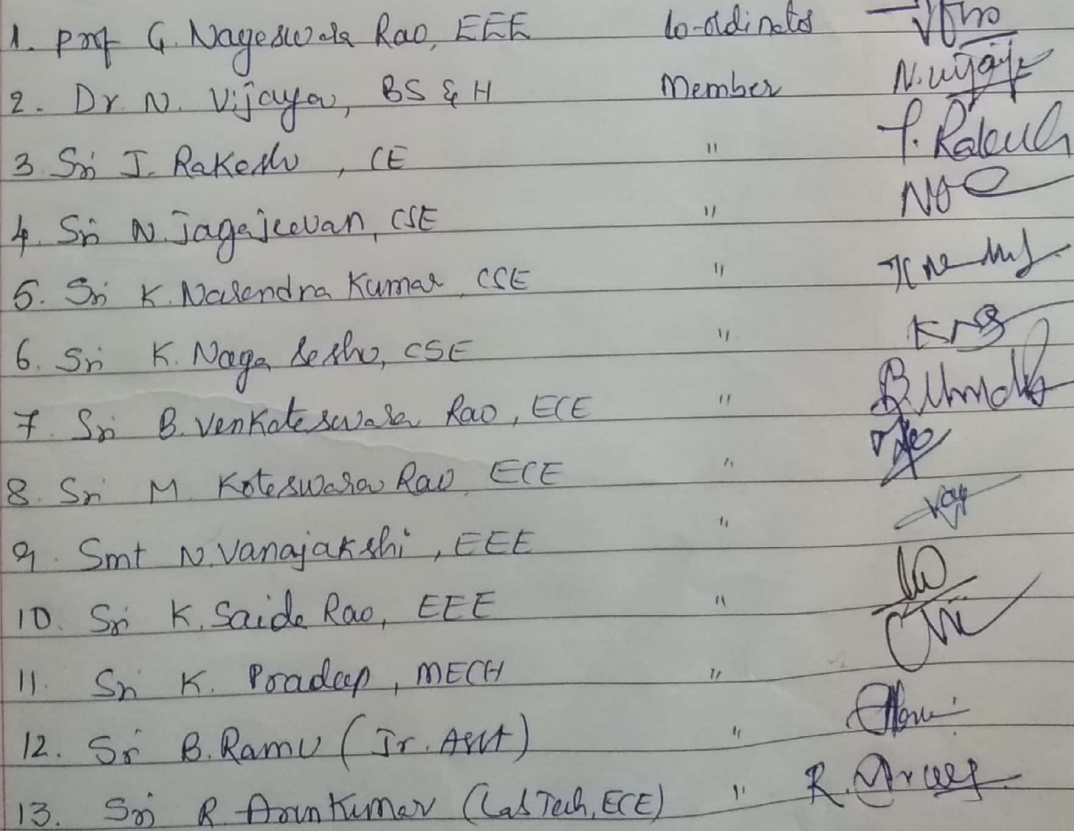 1. Prof G. Nageswara Rao, EEE Co-ordinator
2. Dr. N. Vijaya, BS & H Member N. Vijaya
3 Sri J. Rakesh, CE " J. Rakesh
4. Sri N. Jagajeevan, CSE "
5. Sri K. Narendra Kumar CSE "
6. Sri K. Naga Seshu, CSE "
7. Sri B. Venkateswara Rao, ECE "
8. Sri M Koteswara Rao ECE "
9. Smt N. Vanajakshi, EEE "
10. Sri K. Saida Rao, EEE "
11. Sri K. Pradeep, MECH "
12. Sri B. Ramu (Jr. Asst) "
13. Sri R Arun Kumar (Lab Tech, ECE) " R.